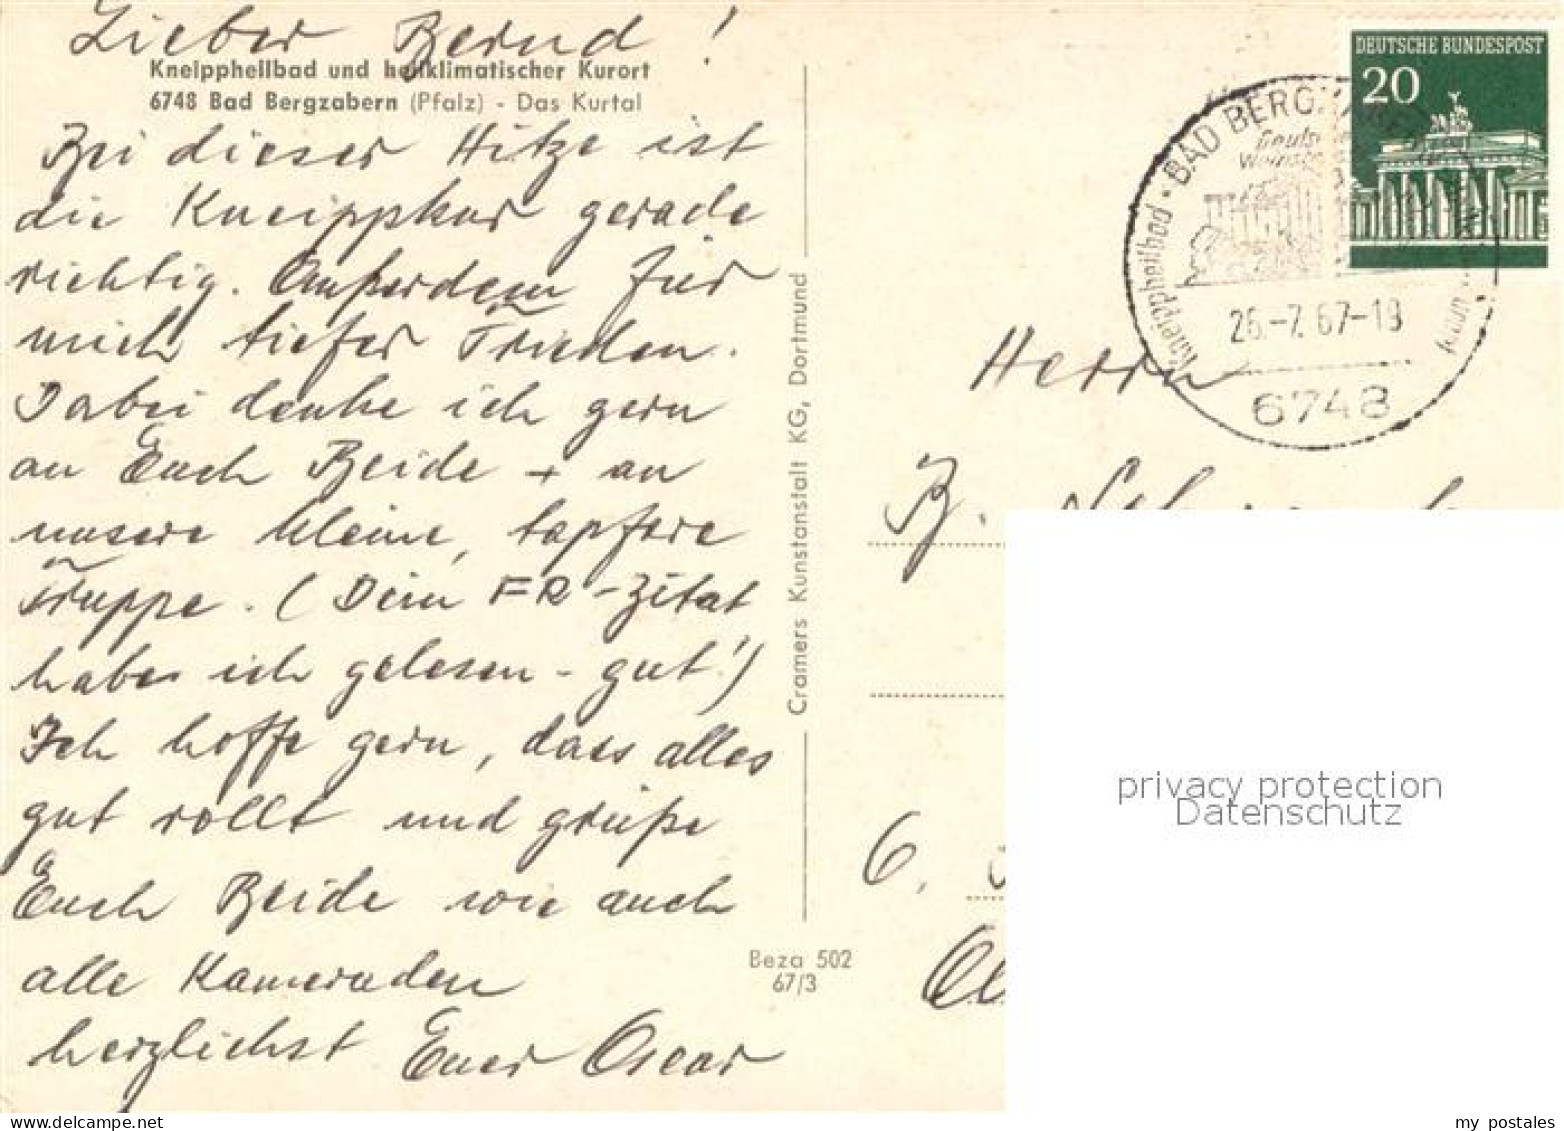 Lieber Bernd!
Kneippheilbad und heilklimatischer Kurort
6748 Bad Bergzabern (Pfalz) - Das Kurtal
Bei dieser Hitze ist
die Kneippkur gerade
richtig. Außerdem für
mich tiefer Frieden.
Dabei denke ich gern
an Euch Beide + an
unsere kleine, tapfere
Truppe. (Dein FR-Zitat
habe ich gelesen - gut!)
Ich hoffe gern, dass alles
gut rollt und grüße
Euch Beide wie auch
alle Kameraden
herzlichst Euer Oscar
Cramers Kunstanstalt KG, Dortmund
Beza 502
67/3
DEUTSCHE BUNDESPOST
20
Kneippheilbad · BAD BERGZA
Weinst
26.-7.67-19
6748
Herrn
B.
6.
privacy protection
Datenschutz
my postales